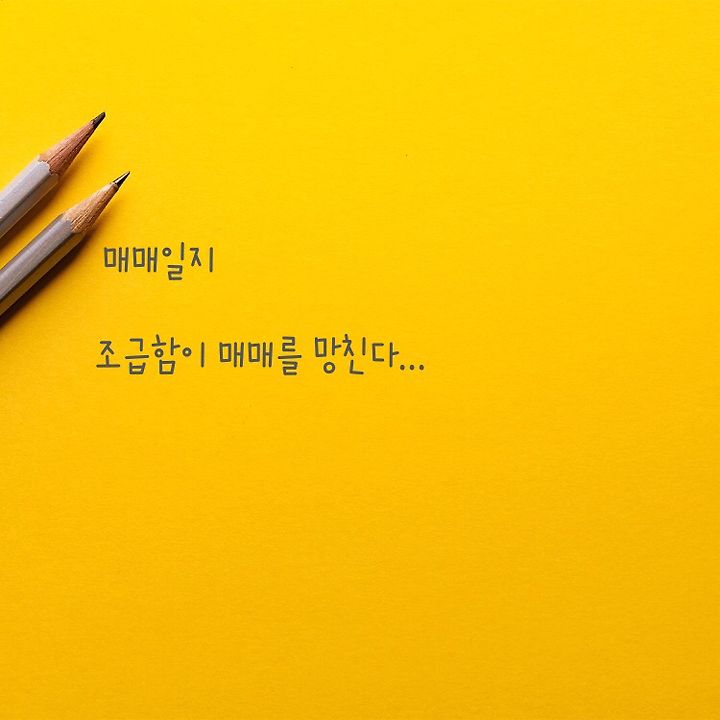 매매일지
조급함이 매매를 망친다...